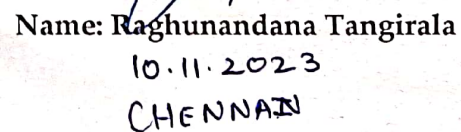 Name: Raghunandana Tangirala
10.11.2023
CHENNAI